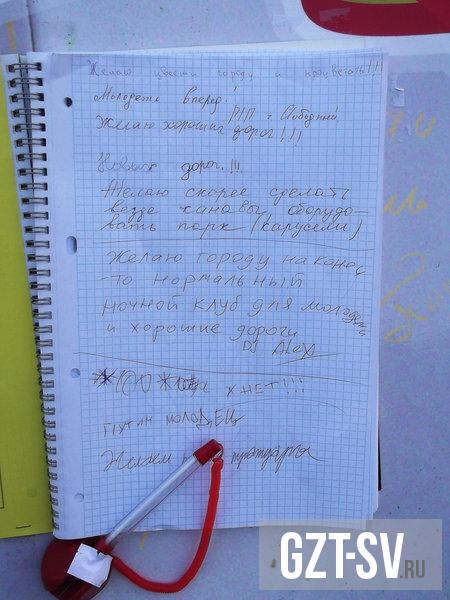 Желаю цвести городу и процветать!!!
Молодежь вперед!
РПП г. Свободный
Желаю хороших дорог!!!
Новых дорог.!!!
Желаю скорее сделать
везде канавы оборудо-
вать парк (карусели)
Желаю городу наконец
-то нормальный
ночной клуб для молодёжи
и хорошие дороги
DJ Alex
нет!!!
ПУТИН МОЛОДЕЦ
тротуары
GZT-SV.RU